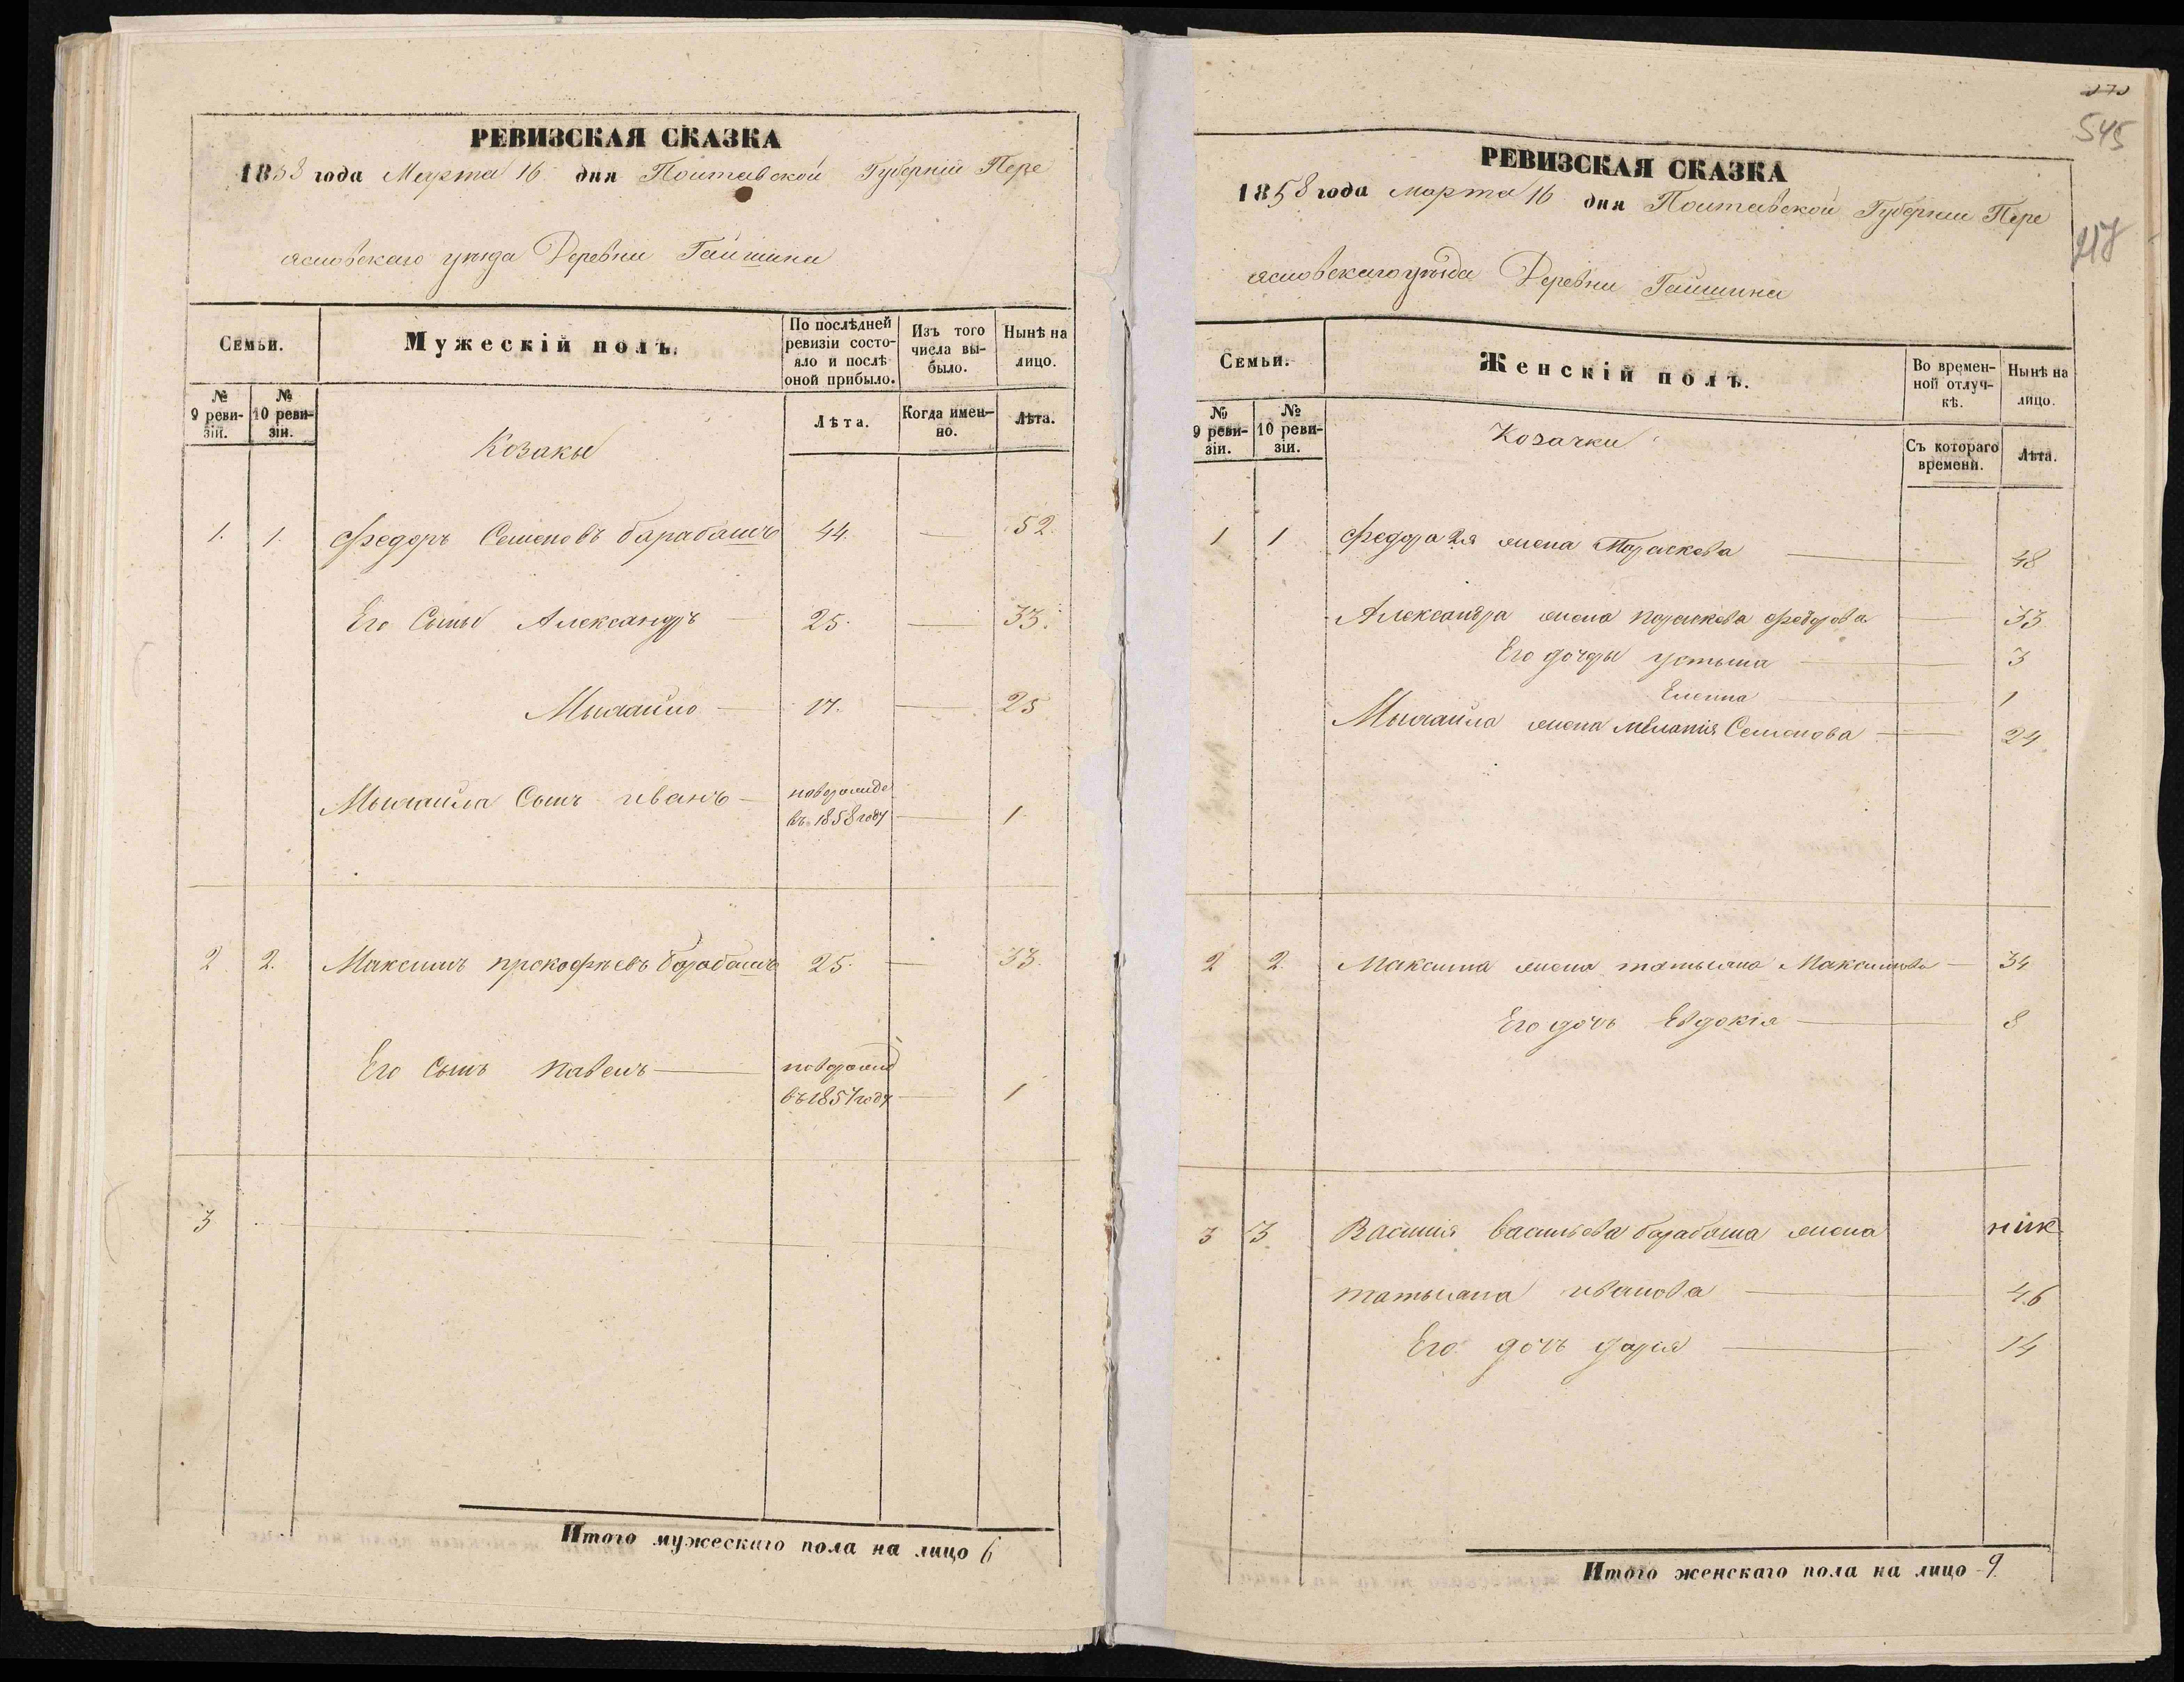 РЕВИЗСКАЯ СКАЗКА
1858 года Марта 16 дня Полтавской Губерніи Пере
яславскаго уѣзда Деревни Гайшина
Семьи.
Мужескій полъ.
По послѣдней ревизіи состояло и послѣ оной прибыло.
Изъ того числа выбыло.
Нынѣ на лицо.
№ 9 ревизіи.
№ 10 ревизіи.
Козаки
Лѣта.
Когда именно.
Лѣта.
1. 1. Федоръ Семеновъ барабашъ 44. — 52.
Его Сыны Александръ 25. — 33.
Мыхайло — 17. — 25
Мыхайла Сынъ иванъ — новорожде
въ 1858 году — 1.
2 2. Максимъ прокофьевъ барабашъ 25. — 33.
Его Сынъ павелъ — новорожд
въ 1857 году — 1
3
Итого мужескаго пола на лицо 6
545
РЕВИЗСКАЯ СКАЗКА
1858 года марта 16 дня Полтавской Губернии Пере
яславскаго уѣзда Деревни Гайшина
Семьи.
Женскій полъ.
Во временной отлучкѣ.
Нынѣ на лицо.
№ 9 ревизіи.
№ 10 ревизіи.
Козачки
Съ котораго времени.
Лѣта.
1 1 Федора 2я жена Параскева — 48
Александра жена параскева федорова — 33
Его дочери устына — 3
Елена — 1
Мыхайла жена мелания Семенова — 24
2 2. Максима жена татьяна Максимова — 34
Его дочь Евдокія — 8
3 3. Василия васильева барабаша жена
татьяна иванова — 46
Его дочь дария — 14
Итого женскаго пола на лицо 9.